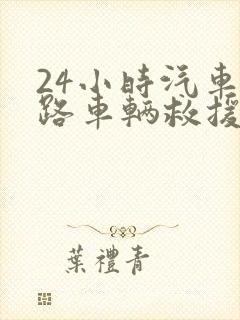 24小時汽車
路車輛救援
葉禮青